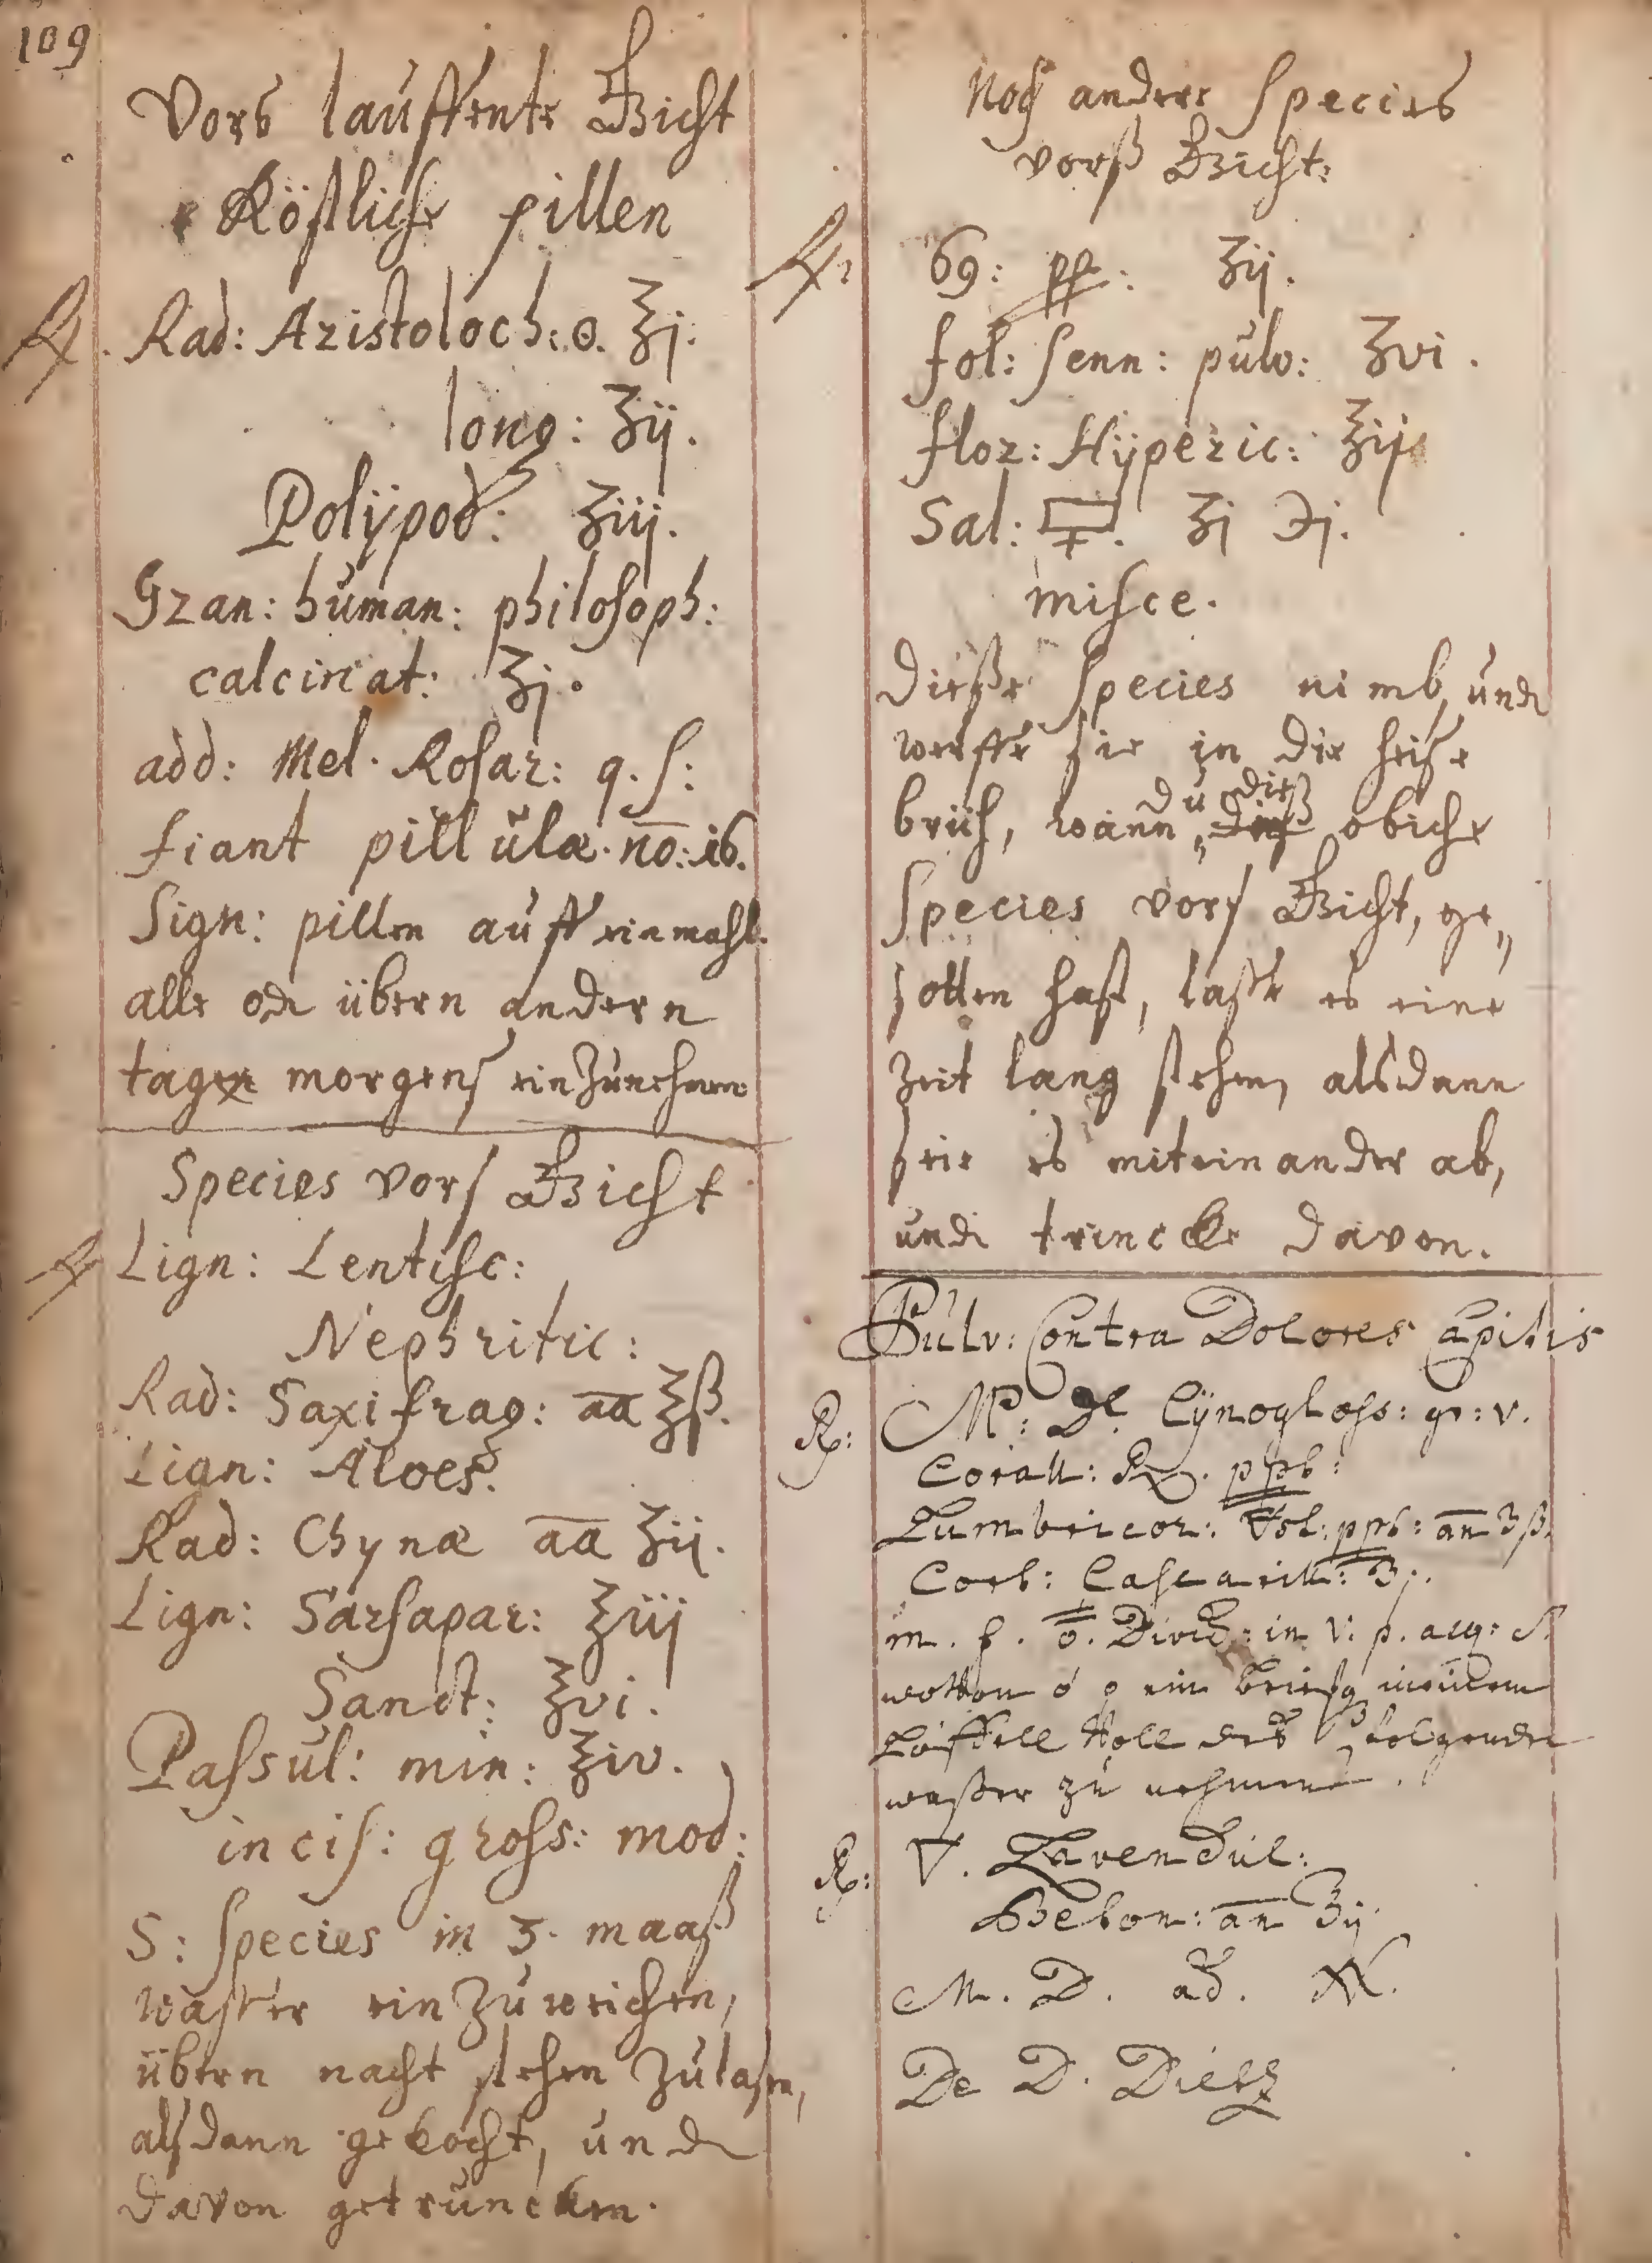 109
Vors lauffente Gicht
Köstliche pillen
℞. Rad: Aristoloch: ⊙. ʒj.
long: ʒij.
Polÿpod: ʒiij.
Gran: human: philosoph:
calcinat: ʒj.
add: Mel. Rosar: q. s:
fiant pillulæ. no: 16.
Sign: pillen auff einmahl
alle od übern andern
tage morgens einzunehmen
Species vors Gicht
℞ Lign: Lentisc:
Nephritic:
Rad: Saxifrag: aa ℥ß.
Lign: Aloes.
Rad: Chynæ aa ʒij.
Lign: Sarsapar: ℥iij
Sanct: ℥vi.
Passul: min: ℥iv.
incis: gross: mod:
S: species in 3. maaß
wasser ein zu weichen,
übern nacht stehen zulasen,
alsdann gekocht, und
davon getruncken.
Noch andere Species
vorß Gicht:
℞: pp: ʒij.
fol: senn: pulv: ʒvi.
flor: Hÿperic: ʒij
Sal: 🜿. ʒj ℈j.
misce.
Dieße Species nimb, und
werffe sie in die heise
brüh, wann du dieß obiche
Species vors Gicht, ge„
sotten hast, lasse es eine
zeit lang stehen, alsdann
seie es miteinander ab,
und trincke davon.
Pulv: Contra Dolores Capitis
℞: M: De Cÿnogloss: gr: v.
Corall: R. ppt:
Lumbricor: ppt: an ʒß.
Cort: Cascarill: ʒj.
m. f. Divid: in v. p. aeq: S.
ein in einem
Löffell Voll des folgenden
waßer zu nehmen.
℞: ▽. Lavendul:
Beton: an ℥ij
M. D. ad.
De D. Dietz